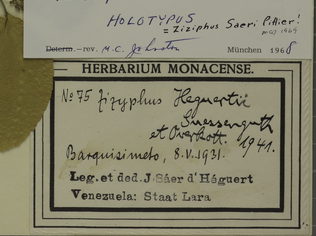 HOLOTYPUS
= Ziziphus Saeri Pittier!
Maj 1969
Determ.-rev. M.C. Johnston München 1968
HERBARIUM MONACENSE.
No 75 Zizyphus Heguertii
Suessenguth
et Overkott. 1941.
Barquisimeto, 8.V.1931.
Leg. et ded. J. Sáer d'Héguert
Venezuela: Staat Lara